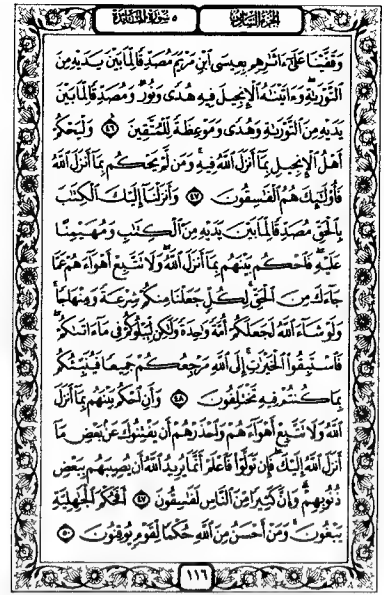 الجزء السادس ٥ سورة المائدة
وَقَفَّيْنَا عَلَىٰ ءَاثَٰرِهِم بِعِيسَى ٱبْنِ مَرْيَمَ مُصَدِّقًا لِّمَا بَيْنَ يَدَيْهِ مِنَ
ٱلتَّوْرَىٰةِ وَءَاتَيْنَٰهُ ٱلْإِنجِيلَ فِيهِ هُدًى وَنُورٌ وَمُصَدِّقًا لِّمَا بَيْنَ
يَدَيْهِ مِنَ ٱلتَّوْرَىٰةِ وَهُدًى وَمَوْعِظَةً لِّلْمُتَّقِينَ ٤٦ وَلْيَحْكُمْ
أَهْلُ ٱلْإِنجِيلِ بِمَآ أَنزَلَ ٱللَّهُ فِيهِ وَمَن لَّمْ يَحْكُم بِمَآ أَنزَلَ ٱللَّهُ
فَأُو۟لَٰٓئِكَ هُمُ ٱلْفَٰسِقُونَ ٤٧ وَأَنزَلْنَآ إِلَيْكَ ٱلْكِتَٰبَ
بِٱلْحَقِّ مُصَدِّقًا لِّمَا بَيْنَ يَدَيْهِ مِنَ ٱلْكِتَٰبِ وَمُهَيْمِنًا
عَلَيْهِ فَٱحْكُم بَيْنَهُم بِمَآ أَنزَلَ ٱللَّهُ وَلَا تَتَّبِعْ أَهْوَآءَهُمْ عَمَّا
جَآءَكَ مِنَ ٱلْحَقِّ لِكُلٍّ جَعَلْنَا مِنكُمْ شِرْعَةً وَمِنْهَاجًا
وَلَوْ شَآءَ ٱللَّهُ لَجَعَلَكُمْ أُمَّةً وَٰحِدَةً وَلَٰكِن لِّيَبْلُوَكُمْ فِى مَآ ءَاتَىٰكُمْ
فَٱسْتَبِقُوا۟ ٱلْخَيْرَٰتِ إِلَى ٱللَّهِ مَرْجِعُكُمْ جَمِيعًا فَيُنَبِّئُكُم
بِمَا كُنتُمْ فِيهِ تَخْتَلِفُونَ ٤٨ وَأَنِ ٱحْكُم بَيْنَهُم بِمَآ أَنزَلَ
ٱللَّهُ وَلَا تَتَّبِعْ أَهْوَآءَهُمْ وَٱحْذَرْهُمْ أَن يَفْتِنُوكَ عَنۢ بَعْضِ مَآ
أَنزَلَ ٱللَّهُ إِلَيْكَ فَإِن تَوَلَّوْا۟ فَٱعْلَمْ أَنَّمَا يُرِيدُ ٱللَّهُ أَن يُصِيبَهُم بِبَعْضِ
ذُنُوبِهِمْ وَإِنَّ كَثِيرًا مِّنَ ٱلنَّاسِ لَفَٰسِقُونَ ٤٩ أَفَحُكْمَ ٱلْجَٰهِلِيَّةِ
يَبْغُونَ وَمَنْ أَحْسَنُ مِنَ ٱللَّهِ حُكْمًا لِّقَوْمٍ يُوقِنُونَ ٥٠
١١٦